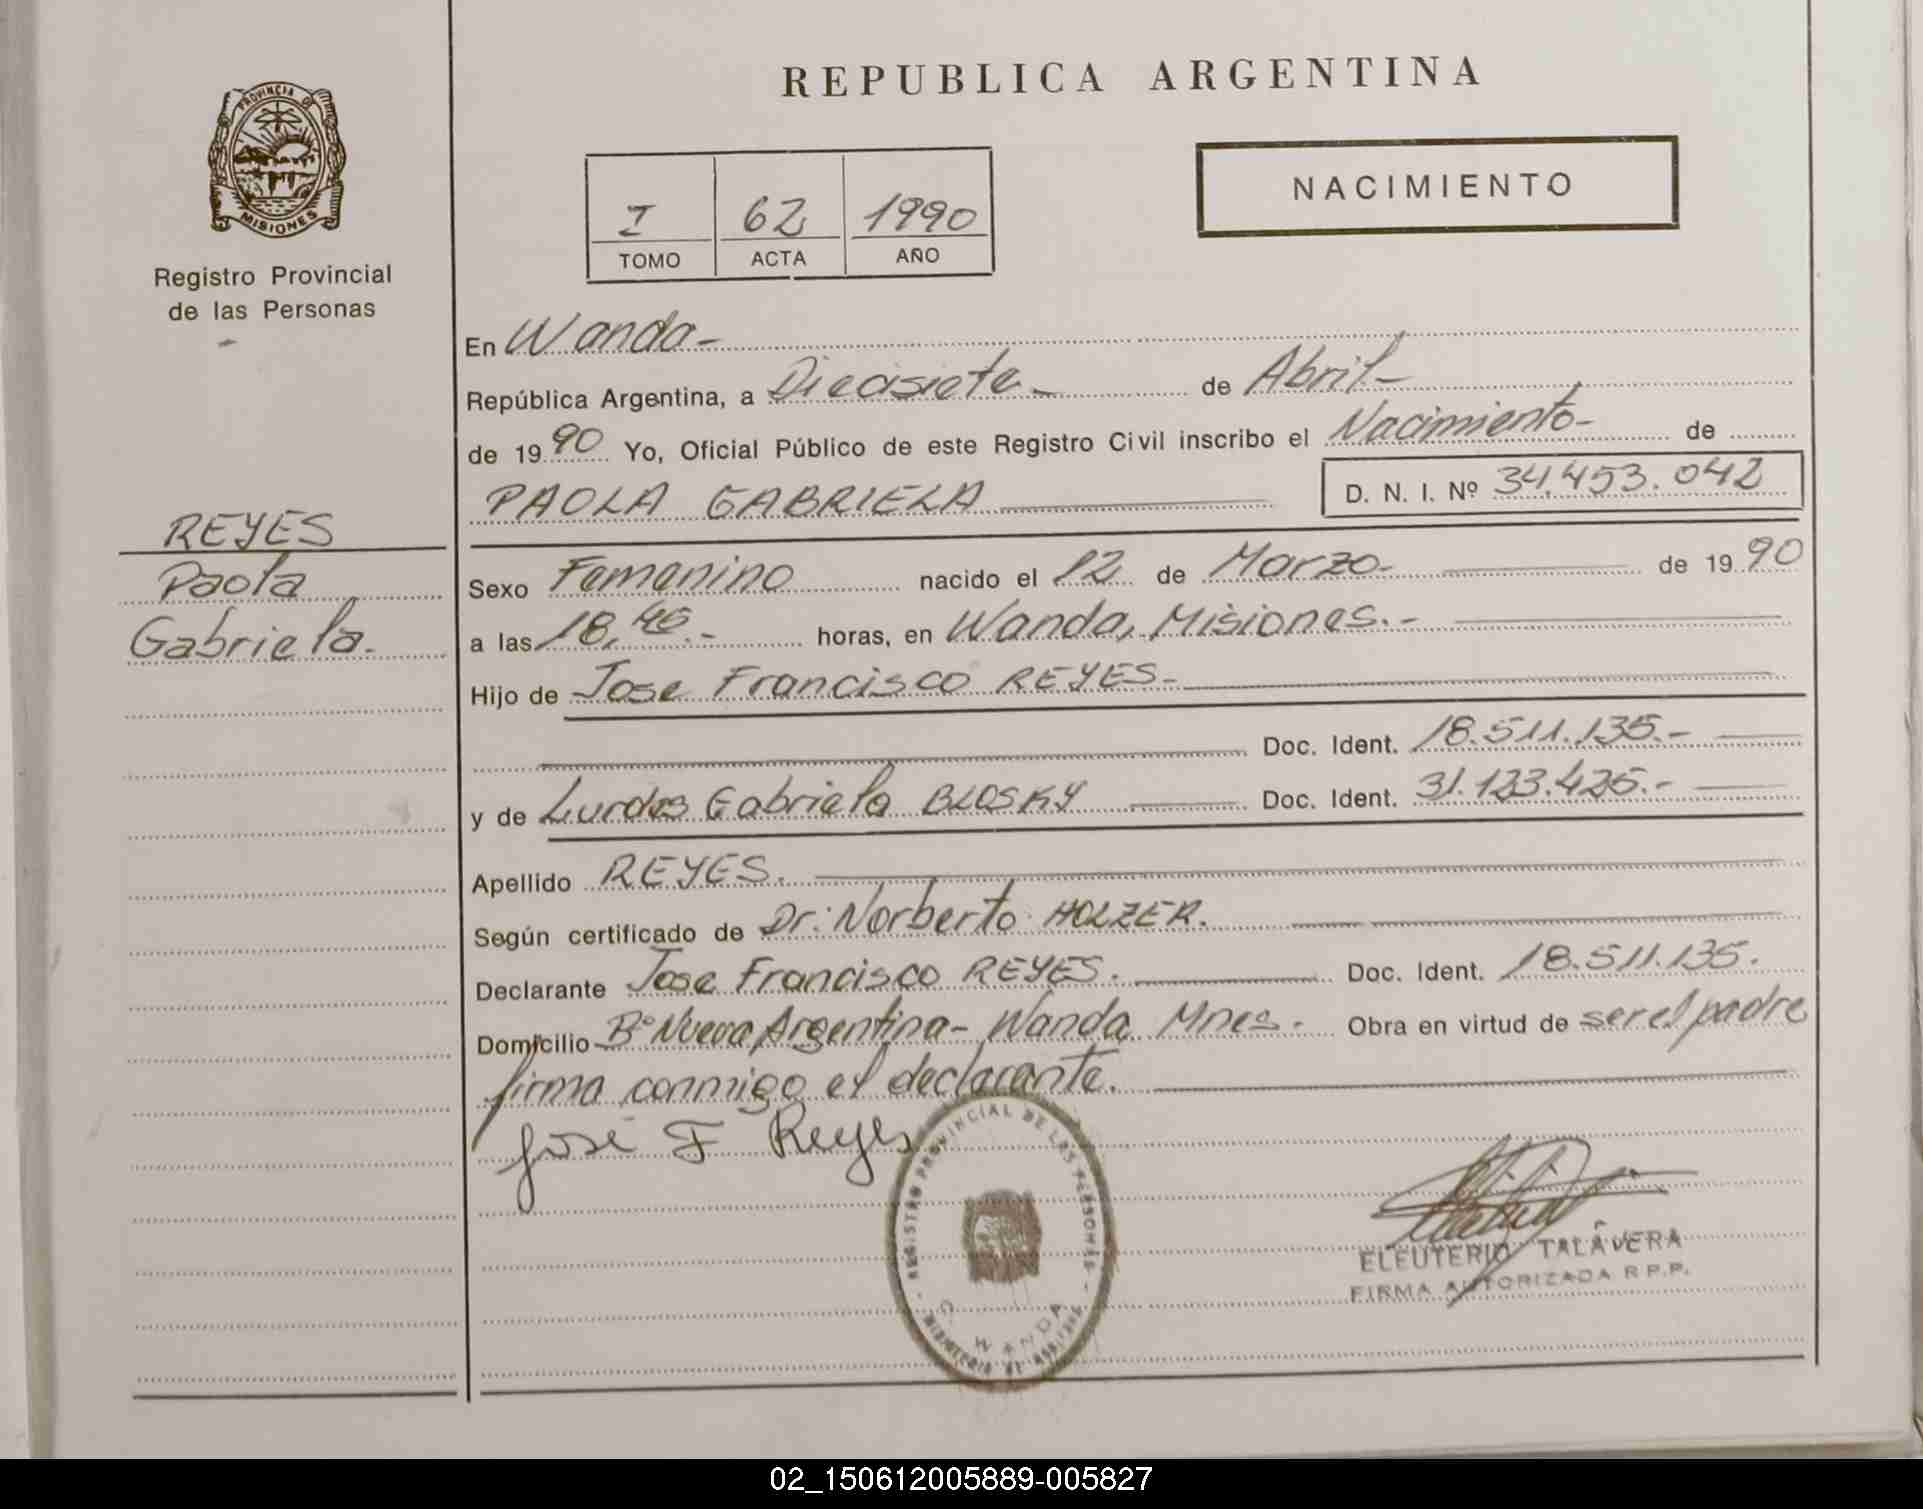 REPUBLICA ARGENTINA
PROVINCIA DE
MISIONES
Registro Provincial
de las Personas
I 62 1990
TOMO ACTA AÑO
NACIMIENTO
En Wanda-
República Argentina, a Diecisiete- de Abril-
de 1990 Yo, Oficial Público de este Registro Civil inscribo el Nacimiento- de
PAOLA GABRIELA D. N. I. Nº 34.453.042
REYES
Paola
Gabriela.
Sexo Femenino nacido el 12 de Marzo- de 1990
a las 18,45.- horas, en Wanda, Misiones.-
Hijo de Jose Francisco REYES-
Doc. Ident. 18.511.135.-
y de Lurdes Gabriela BLOSKY Doc. Ident. 31.123.425.-
Apellido REYES.
Según certificado de Dr. Norberto HOLZER.
Declarante Jose Francisco REYES. Doc. Ident. 18.511.135.
Domicilio Bº Nueva Argentina- Wanda, Mnes. Obra en virtud de ser el padre
firma conmigo el declarante.
José F Reyes
REGISTRO PROVINCIAL DE LAS PERSONAS
WANDA
ELEUTERIO TALAVERA
FIRMA AUTORIZADA R.P.P.
02_150612005889-005827